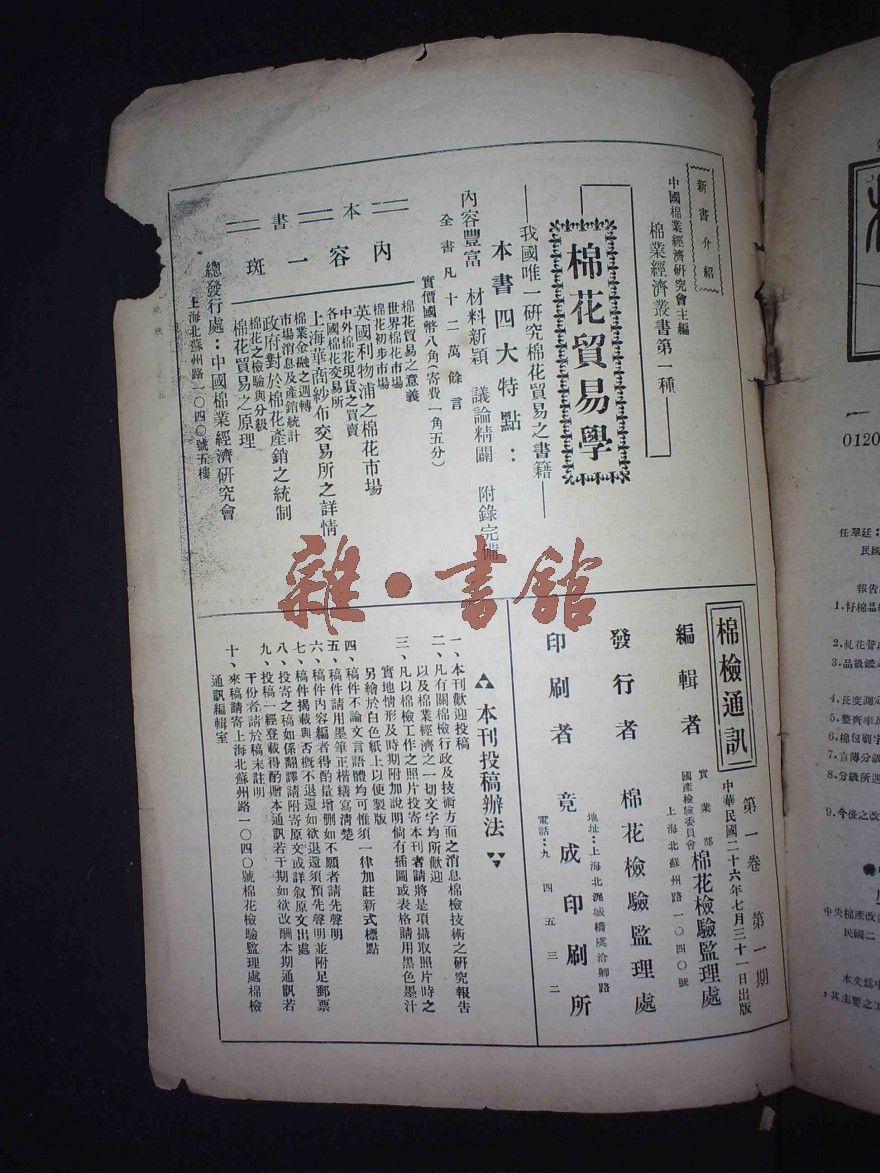 新書介紹
中國棉業經濟研究會主編
棉業經濟叢書第一種
棉花貿易學
我國唯一研究棉花貿易之書籍
本書四大特點：
內容豐富 材料新穎 議論精闢 附錄完備
全書凡十二萬餘言
實價國幣八角(寄費一角五分)
本書內容一斑
棉花貿易之意義
世界棉花市場
棉花初步市場
英國利物浦之棉花市場
中外棉花現貨之買賣
各國棉花交易所
上海華商紗布交易所之詳情
棉業金融之週轉
市場消息及產銷統計
政府對於棉花產銷之統制
棉花之檢驗與分級
棉花貿易之原理
總發行處：中國棉業經濟研究會
上海北蘇州路一〇四〇號五樓
棉檢通訊
第一卷 第一期
中華民國二十六年七月三十一日出版
編輯者
實業部
國產檢驗委員會
棉花檢驗監理處
上海北蘇州路一〇四〇號
發行者 棉花檢驗監理處
印刷者 竟成印刷所
電話：九四五三二
本刊投稿辦法
一、本刊歡迎投稿
二、凡有關棉檢行政及技術方面之消息棉檢技術之研究報告
以及棉業經濟之一切文字均所歡迎
三、凡以棉檢工作之照片投寄本刊者請將是項攝取照片時之
實地情形及時期附加說明倘有插圖或表格請用黑色墨汁
另繪於白色紙上以便製版
四、稿件不論文言語體均可惟須一律加註新式標點
五、稿件請用墨筆正楷繕寫清楚
六、稿件內容編者得酌量增删如不願者請先聲明
七、稿件揭載與否概不退還如欲退還須預先聲明並附足郵票
八、投寄之稿如係翻譯請附寄原文或詳叙原文出處
九、投稿一經登載得酌贈本通訊若干期如欲改酬本期通訊若
干份者請於稿末註明
十、來稿請寄上海北蘇州路一〇四〇號棉花檢驗監理處棉檢
通訊編輯室
雜·書館
0120
任翠廷：
民國
報告
1.籽棉品
2.軋花
3.品級鑑
4.長度測定
5.整齊率
6.棉包刷字
7.宣傳分
8.分級所
9.今後之改
中央棉產改
民國二
本文爲
，其主要之